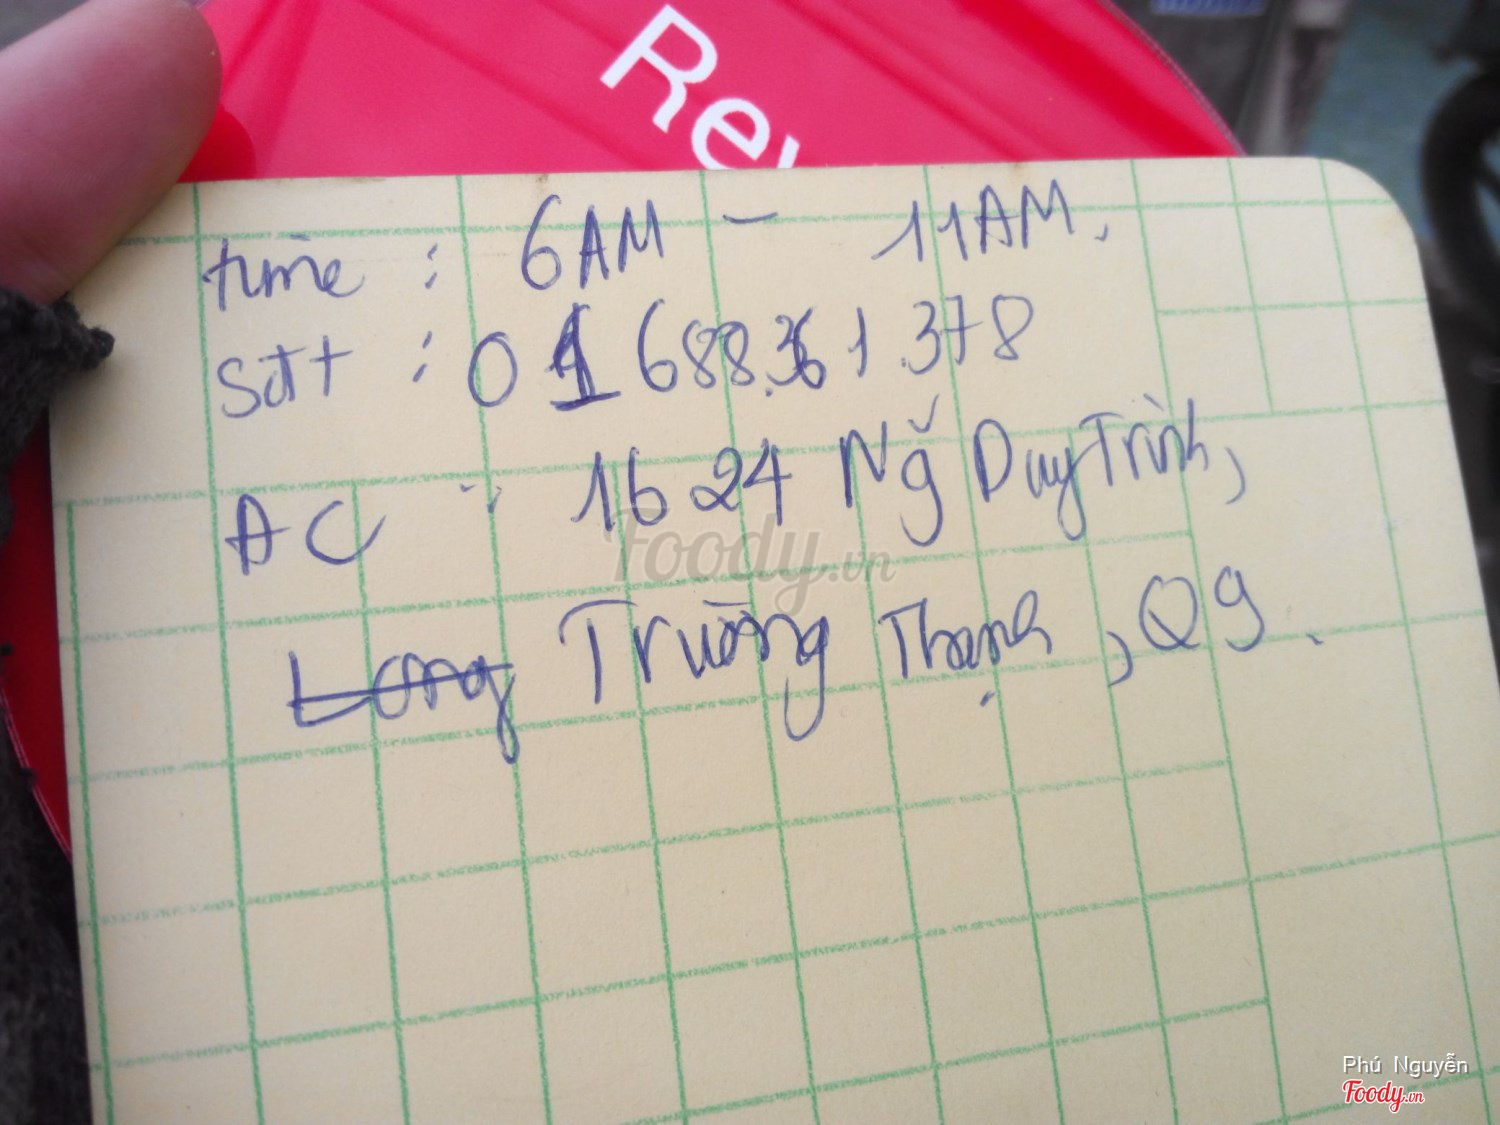 Rev
time : 6AM - 11AM.
Sđt : 01688.361.378
ĐC : 1624 Ng̃ Duy Trinh,
Long Trường Thạnh, Q9.
Foody.vn
Phú Nguyễn
Foody.vn